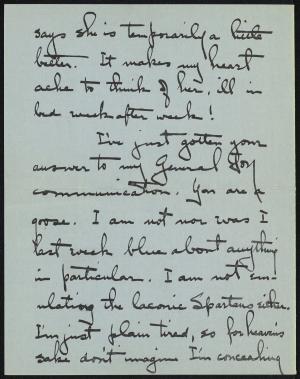 says she is temporarily a little
better. It makes my heart
ache to think of her, ill in
bed week after week!
I've just gotten your
answer to my General Joy
communication. You are a
goose. I am not nor was I
last week blue about anything
in particular. I am not em-
ulating the laconic Spartans either.
I'm just plain tired, so for heaven's
sake don't imagine I'm concealing